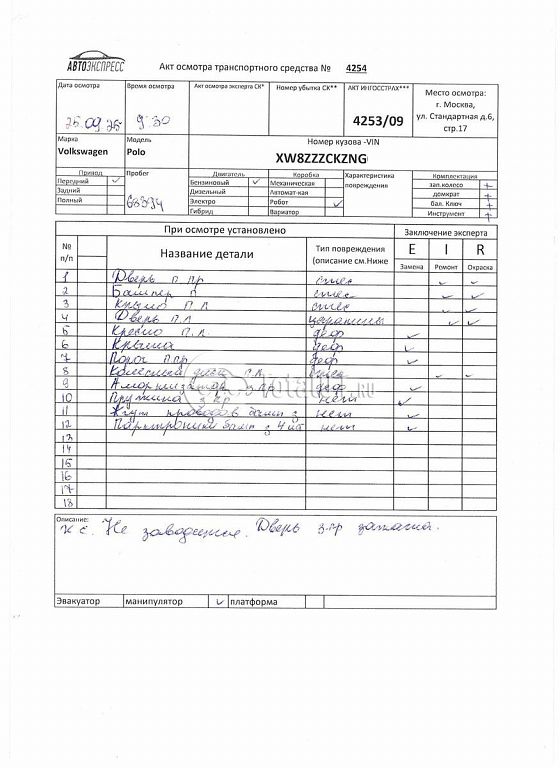 АВТОЭКСПРЕСС
Акт осмотра транспортного средства № 4254
Дата осмотра Время осмотра Акт осмотра эксперта СК* Номер убытка СК** АКТ ИНГОССТРАХ*** Место осмотра:
г. Москва,
ул. Стандартная д.6,
стр.17
25.09.25 9:30 4253/09
Марка Модель Номер кузова -VIN
Volkswagen Polo XW8ZZZCKZNG
Привод Пробег Двигатель Коробка Характеристика повреждения Комплектация
Передний ✓ Бензиновый ✓ Механическая зап.колесо +
Задний Дизельный Автомат-кая домкрат +
Полный 68394 Электро Робот ✓ бал. Ключ +
Гибрид Вариатор Инструмент +
При осмотре установлено Заключение эксперта
№ п/п Название детали Тип повреждения (описание см.Ниже E I R
Замена Ремонт Окраска
1 Дверь п пр ✓ ✓
2 Бампер п ✓ ✓
3 Крыло п л ✓ ✓
4 Дверь п.л царапины ✓ ✓
5 п.л. деф ✓
6 Крыша деф ✓
7 Порог п.пр деф ✓
8 диск ✓ ✓
9 Амортизатор з.пр деф ✓
10 Пружина з пр нет ✓
11 Жгут проводов бамп з нет ✓
12 Парктроники бамп з 4 шт нет ✓
13
14
15
16
17
18
Описание:
Не заводится. Дверь з.пр
Эвакуатор манипулятор ✓ платформа